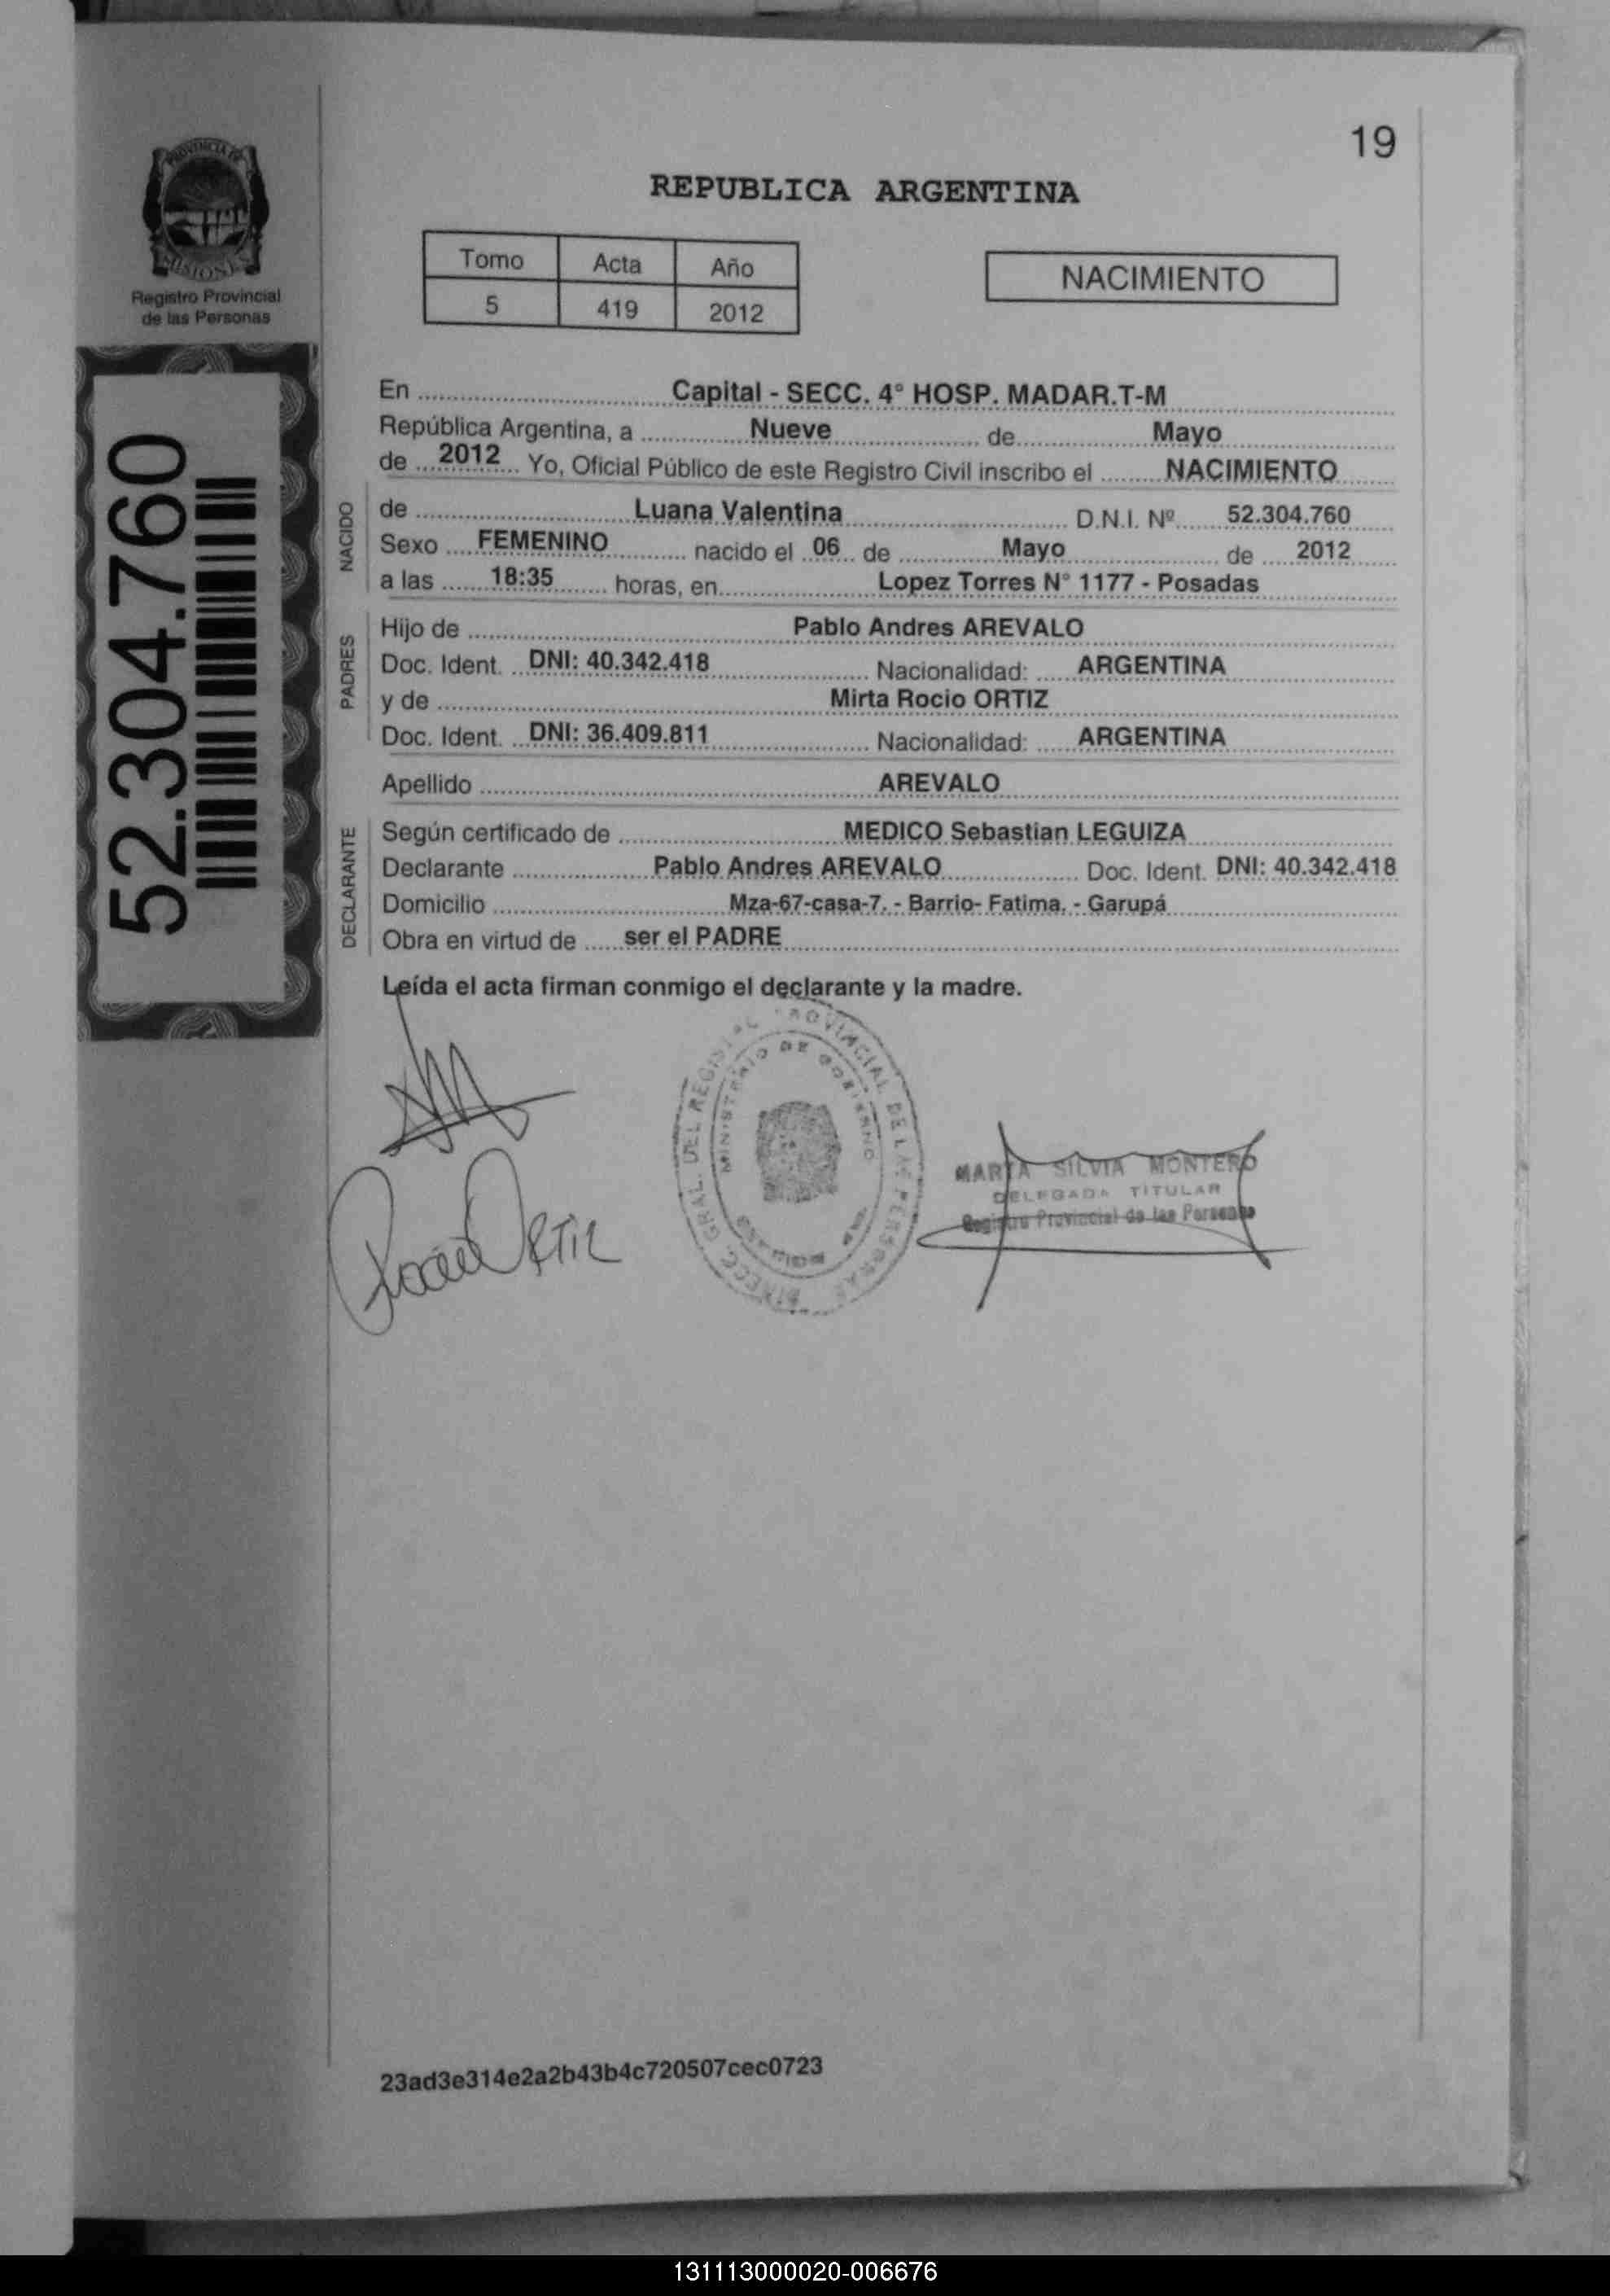 19
PROVINCIA DE
MISIONES
Registro Provincial
de las Personas
REPUBLICA ARGENTINA
Tomo Acta Año
5 419 2012
NACIMIENTO
52.304.760
En Capital - SECC. 4° HOSP. MADAR.T-M
República Argentina, a Nueve de Mayo
de 2012 Yo, Oficial Público de este Registro Civil inscribo el NACIMIENTO
NACIDO
de Luana Valentina D.N.I. Nº 52.304.760
Sexo FEMENINO nacido el 06 de Mayo de 2012
a las 18:35 horas, en Lopez Torres N° 1177 - Posadas
PADRES
Hijo de Pablo Andres AREVALO
Doc. Ident. DNI: 40.342.418 Nacionalidad: ARGENTINA
y de Mirta Rocio ORTIZ
Doc. Ident. DNI: 36.409.811 Nacionalidad: ARGENTINA
Apellido AREVALO
DECLARANTE
Según certificado de MEDICO Sebastian LEGUIZA
Declarante Pablo Andres AREVALO Doc. Ident. DNI: 40.342.418
Domicilio Mza-67-casa-7. - Barrio- Fatima. - Garupá
Obra en virtud de ser el PADRE
Leída el acta firman conmigo el declarante y la madre.
DIRECC. GRAL. DEL REGISTRO PROVINCIAL DE LAS PERSONAS
MINISTERIO DE GOBIERNO
MARTA SILVIA MONTERO
DELEGADA TITULAR
Registro Provincial de las Personas
Rocio ORTIZ
23ad3e314e2a2b43b4c720507cec0723
131113000020-006676